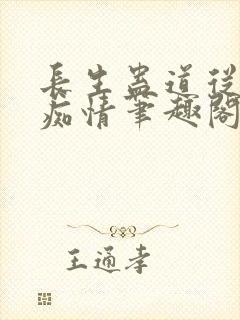 長生蠱道從
痴情筆趣閣
王通孝